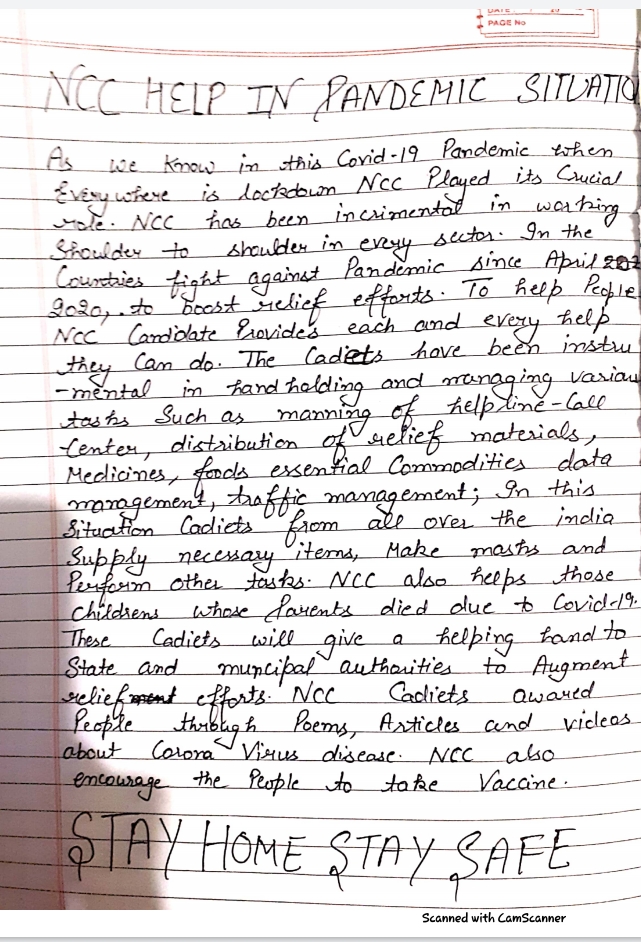 DATE
PAGE No
NCC HELP IN PANDEMIC SITUATIO
As we know in this Covid-19 Pandemic when
Everywhere is lockdown NCC Played its Crucial
role. NCC has been incrimental in working
Shoulder to shoulder in every sector. In the
Countries fight against Pandemic since April 202
2020, to boost relief efforts. To help People
NCC Candidate Provides each and every help
they Can do. The Cadiets have been instru
-mental in handholding and managing variou
tasks Such as manning of helpline-Call
Center, distribution of relief materials,
Medicines, foods essential Commodities data
management, traffic management; In this
Situation Cadiets from all over the india
Supply necessary items, Make masks and
Perform other tasks. NCC also helps those
Childrens whose Parents died due to Covid-19.
These Cadiets will give a helping hand to
State and muncipal authorities to Augment
relief efforts. NCC Cadiets awared
People through Poems, Articles and videos
about Corona Virus disease. NCC also
encourage the People to take Vaccine.
STAY HOME STAY SAFE
Scanned with CamScanner